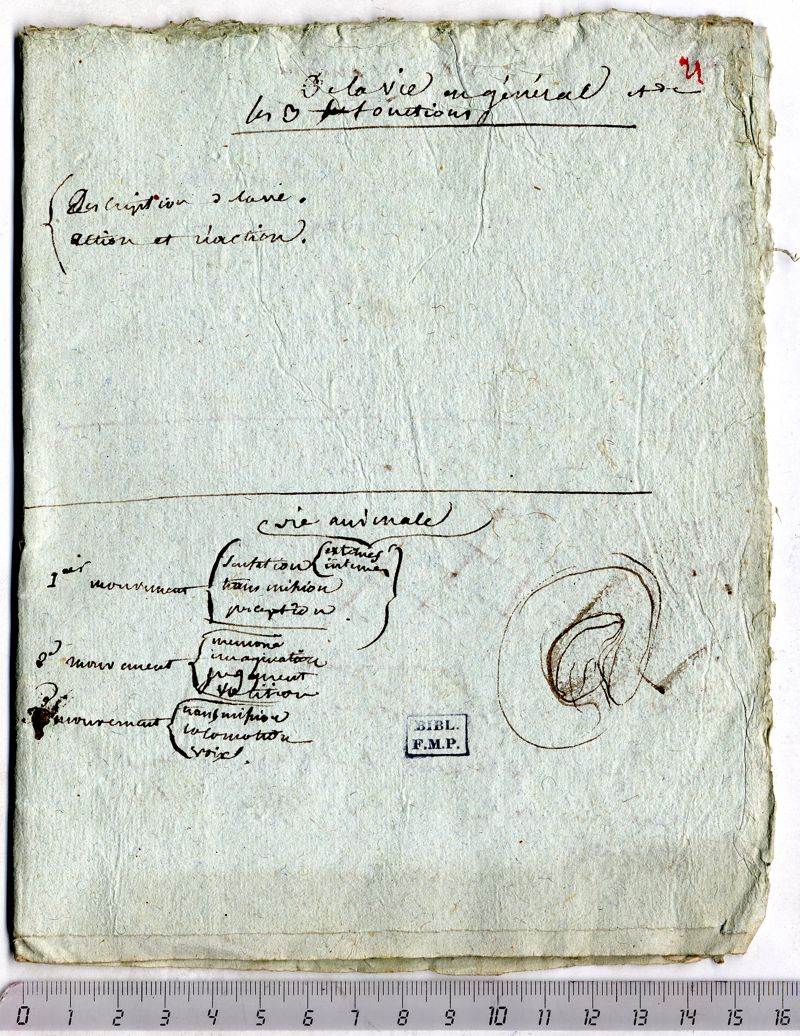 21
De la vie en général et de
les 3 fonctions
description d la vie.
action et réaction.
vie animale
1er mouvement
sensation
externes
internes
transmission
perception
2d mouvement
memoire
imagination
jugement
volition
mouvement
transmission
locomotion
voix.
BIBL.
F.M.P.
0 1 2 3 4 5 6 7 8 9 10 11 12 13 14 15 16